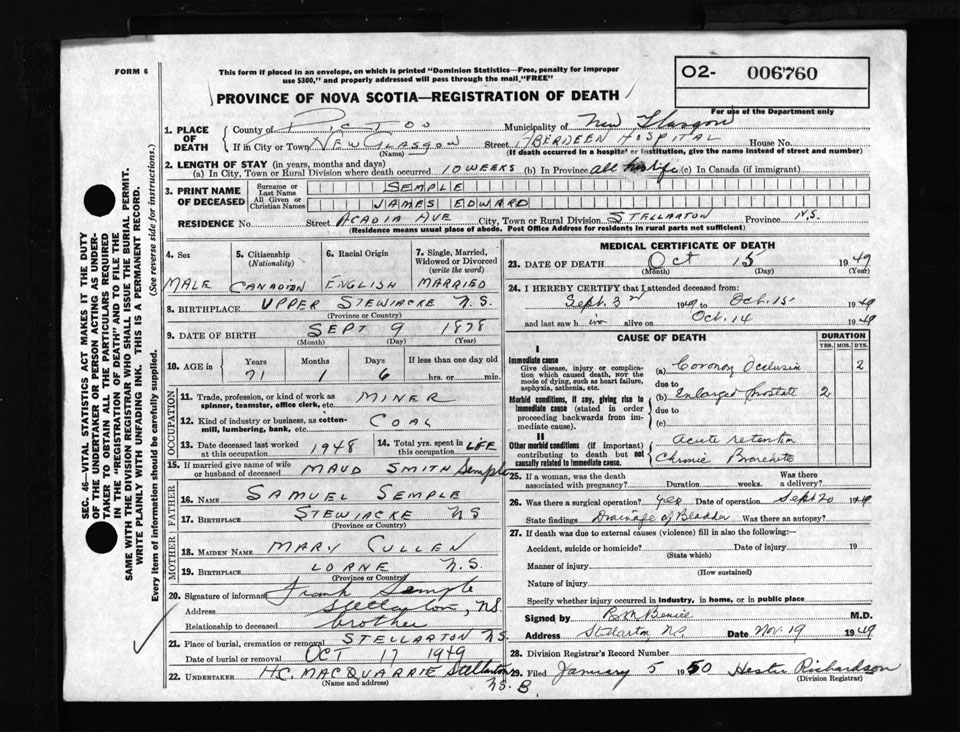 FORM 6
This form if placed in an envelope, on which is printed "Dominion Statistics—Free, penalty for improper
use $300," and properly addressed will pass through the mail "FREE"
PROVINCE OF NOVA SCOTIA—REGISTRATION OF DEATH
O2- 006760
For use of the Department only
SEC. 46—VITAL STATISTICS ACT MAKES IT THE DUTY
OF THE UNDERTAKER OR PERSON ACTING AS UNDER-
TAKER TO OBTAIN ALL THE PARTICULARS REQUIRED
IN THE "REGISTRATION OF DEATH" AND TO FILE THE
SAME WITH THE DIVISION REGISTRAR WHO SHALL ISSUE THE BURIAL PERMIT.
WRITE PLAINLY WITH UNFADING INK. THIS IS A PERMANENT RECORD.
Every item of information should be carefully supplied. (See reverse side for instructions.)
1. PLACE OF DEATH
County of PICTOU Municipality of New Glasgow
If in City or Town NEW GLASGOW Street ABERDEEN HOSPITAL House No.
(Name) (If death occurred in a hospital or institution, give the name instead of street and number)
2. LENGTH OF STAY (in years, months and days)
(a) In City, Town or Rural Division where death occurred 10 WEEKS (b) In Province all his life (c) In Canada (if immigrant)
3. PRINT NAME OF DECEASED
Surname or Last Name SEMPLE
All Given or Christian Names JAMES EDWARD
RESIDENCE No. Street ACADIA AVE City, Town or Rural Division STELLARTON Province N.S.
(Residence means usual place of abode. Post Office Address for residents in rural parts not sufficient)
4. Sex MALE
5. Citizenship (Nationality) CANADIAN
6. Racial Origin ENGLISH
7. Single, Married, Widowed or Divorced (write the word) MARRIED
8. BIRTHPLACE UPPER STEWIACKE N.S.
(Province or Country)
9. DATE OF BIRTH SEPT 9 1878
(Month) (Day) (Year)
10. AGE in Years Months Days If less than one day old
71 1 6 hrs. or min.
OCCUPATION
11. Trade, profession, or kind of work as spinner, teamster, office clerk, etc. MINER
12. Kind of industry or business, as cotton-mill, lumbering, bank, etc. COAL
13. Date deceased last worked at this occupation 1948
14. Total yrs. spent in this occupation LIFE
15. If married give name of wife or husband of deceased MAUD SMITH Semple
FATHER
16. NAME SAMUEL SEMPLE
17. BIRTHPLACE STEWIACKE NS
(Province or Country)
MOTHER
18. MAIDEN NAME MARY CULLEN
19. BIRTHPLACE LORNE N.S.
(Province or Country)
20. Signature of informant Frank Semple
Address Stellarton, N.S.
Relationship to deceased brother
21. Place of burial, cremation or removal STELLARTON N.S.
Date of burial or removal OCT 17 1949
22. UNDERTAKER H.C. MACQUARRIE Stellarton
(Name and address) N.S. B.
MEDICAL CERTIFICATE OF DEATH
23. DATE OF DEATH Oct 15 1949
(Month) (Day) (Year)
24. I HEREBY CERTIFY that I attended deceased from:
Sept. 3rd 1949 to Oct. 15 1949
and last saw h im alive on Oct. 14 1949
CAUSE OF DEATH DURATION
YRS. MOS. DYS.
I
Immediate cause
Give disease, injury or complication which caused death, not the mode of dying, such as heart failure, asphyxia, asthenia, etc.
(a) Coronary Occlusion 2
due to
Morbid conditions, if any, giving rise to immediate cause (stated in order proceeding backwards from immediate cause).
(b) Enlarged Prostate 2
due to
(c)
II
Other morbid conditions (if important) contributing to death but not causally related to immediate cause.
Acute retention
Chronic Bronchitis
25. If a woman, was the death associated with pregnancy? Duration weeks. Was there a delivery?
26. Was there a surgical operation? yes Date of operation Sept 20 1949
State findings Drainage of Bladder Was there an autopsy?
27. If death was due to external causes (violence) fill in also the following:—
Accident, suicide or homicide? Date of injury 19
(State which)
Manner of injury
(How sustained)
Nature of injury
Specify whether injury occurred in industry, in home, or in public place
Signed by M.D.
Address Stellarton, N.S. Date Nov. 19 1949
28. Division Registrar's Record Number
29. Filed January 5 1950 Hester Richardson
(Division Registrar)